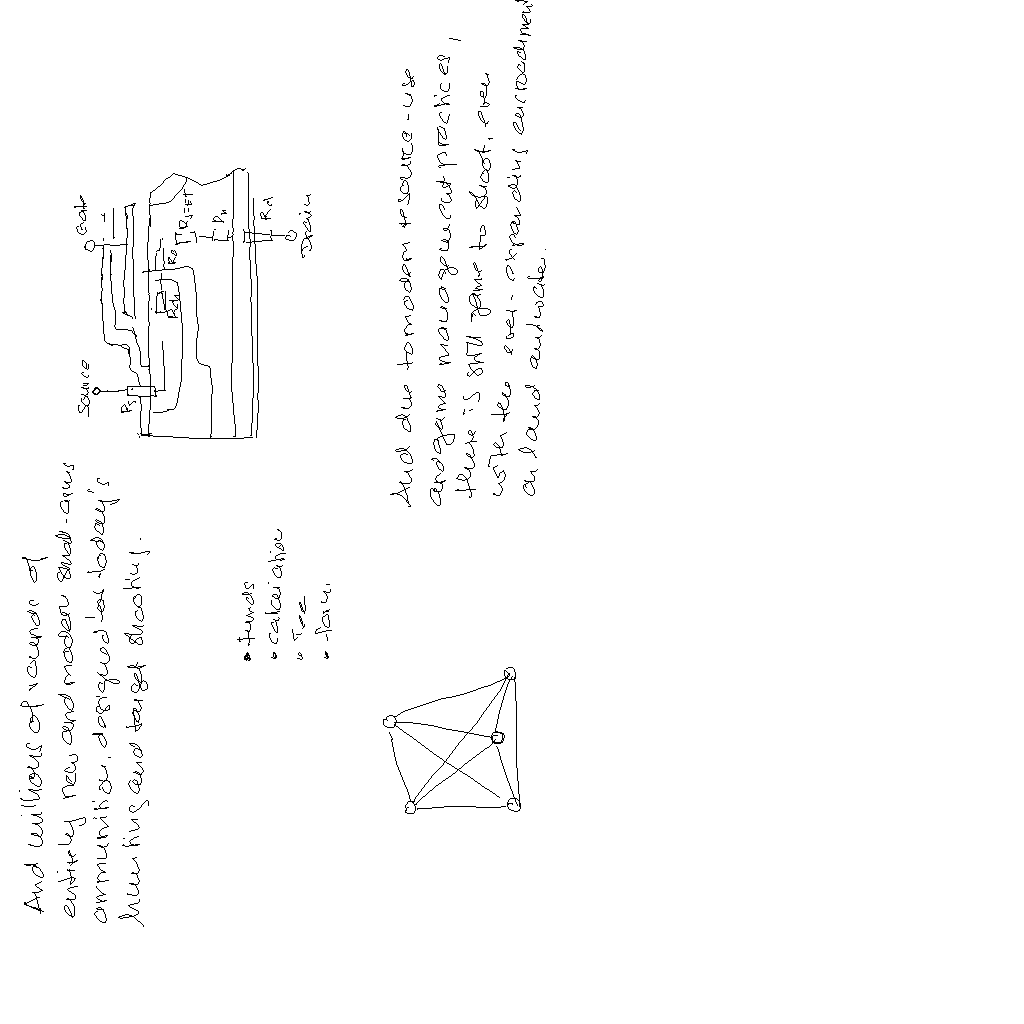 And millions of rounds of
entirely new and modern small-arms
ammunition, designed for today's
hunting and target shooting.
Source
Gate
Rs
Rch
Ra
RJFET
Rn
Rd
Drain
• funds
• calciation
• Tee
• form.
And due to modern resource-use
and game management practices,
there is still game to shoot, even
with the ever-expanding encroachment
on land and water.